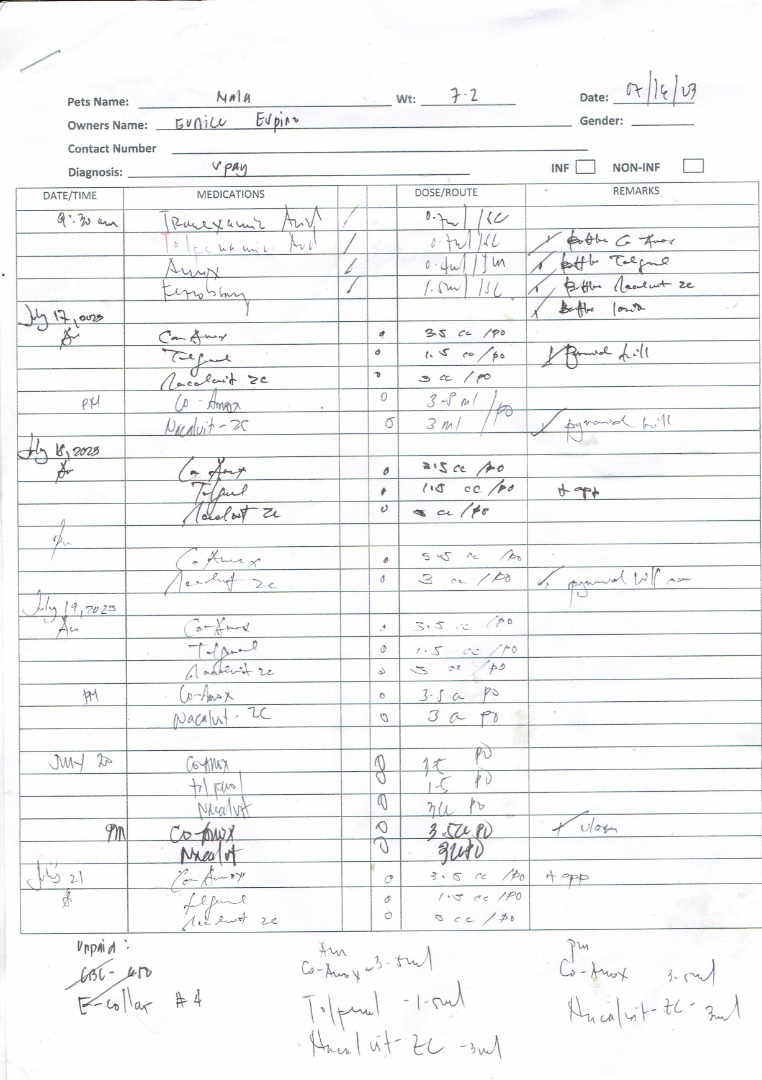 Pets Name: Nala Wt: 7.2 Date: 07/16/23
Owners Name: Eunice Espino Gender:
Contact Number
Diagnosis: spay INF NON-INF
DATE/TIME MEDICATIONS DOSE/ROUTE REMARKS
9:30 am Tranexamic Acid / 0.7ml /SC
Tolfenamic Acid / 0.7ml /SC Co Amox
Amox / 0.4ml /IM Tolfenol
/ 1.5ml /SC Nacalvit 2c
July 17, 2023
Co-Amox 3.5 cc /po
Tolfenol 1.5 cc /po
Nacalvit 2c 3 cc /po
PM Co-Amox 3.5 ml /PO
Nacalvit-2C 3 ml pyramid hill
July 18, 2023
Co Amox 3.5 cc /po
Tolfenol 1.5 cc /po + app
Nacalvit 2c 3 cc /po
pm
Co Amox 3.5 cc /po
Nacalvit 2c 3 cc /po pyramid hill
July 19, 2023
Am Co-Amox 3.5 cc /PO
Tolfenol 1.5 cc /PO
Nacalvit 2c 3 cc /po
PM Co-Amox 3.5 cc po
Nacalvit-2C 3 cc po
July 20 Co-Amox PO
tolfenol 1.5 PO
Nacalvit 3cc PO
PM Co-Amox 3.5cc PO
Nacalvit 3cc PO
July 21 Co-Amox 3.5 cc /po + app
Tolfenol 1.5 cc /po
Nacalvit 2c 3 cc /po
Unpaid : Am pm
CBC - 450 Co-Amox - 3.5ml Co-Amox 3.5ml
E-collar # 4 Tolfenol - 1.5ml Nacalvit-2C - 3ml
Nacalvit-2C - 3ml